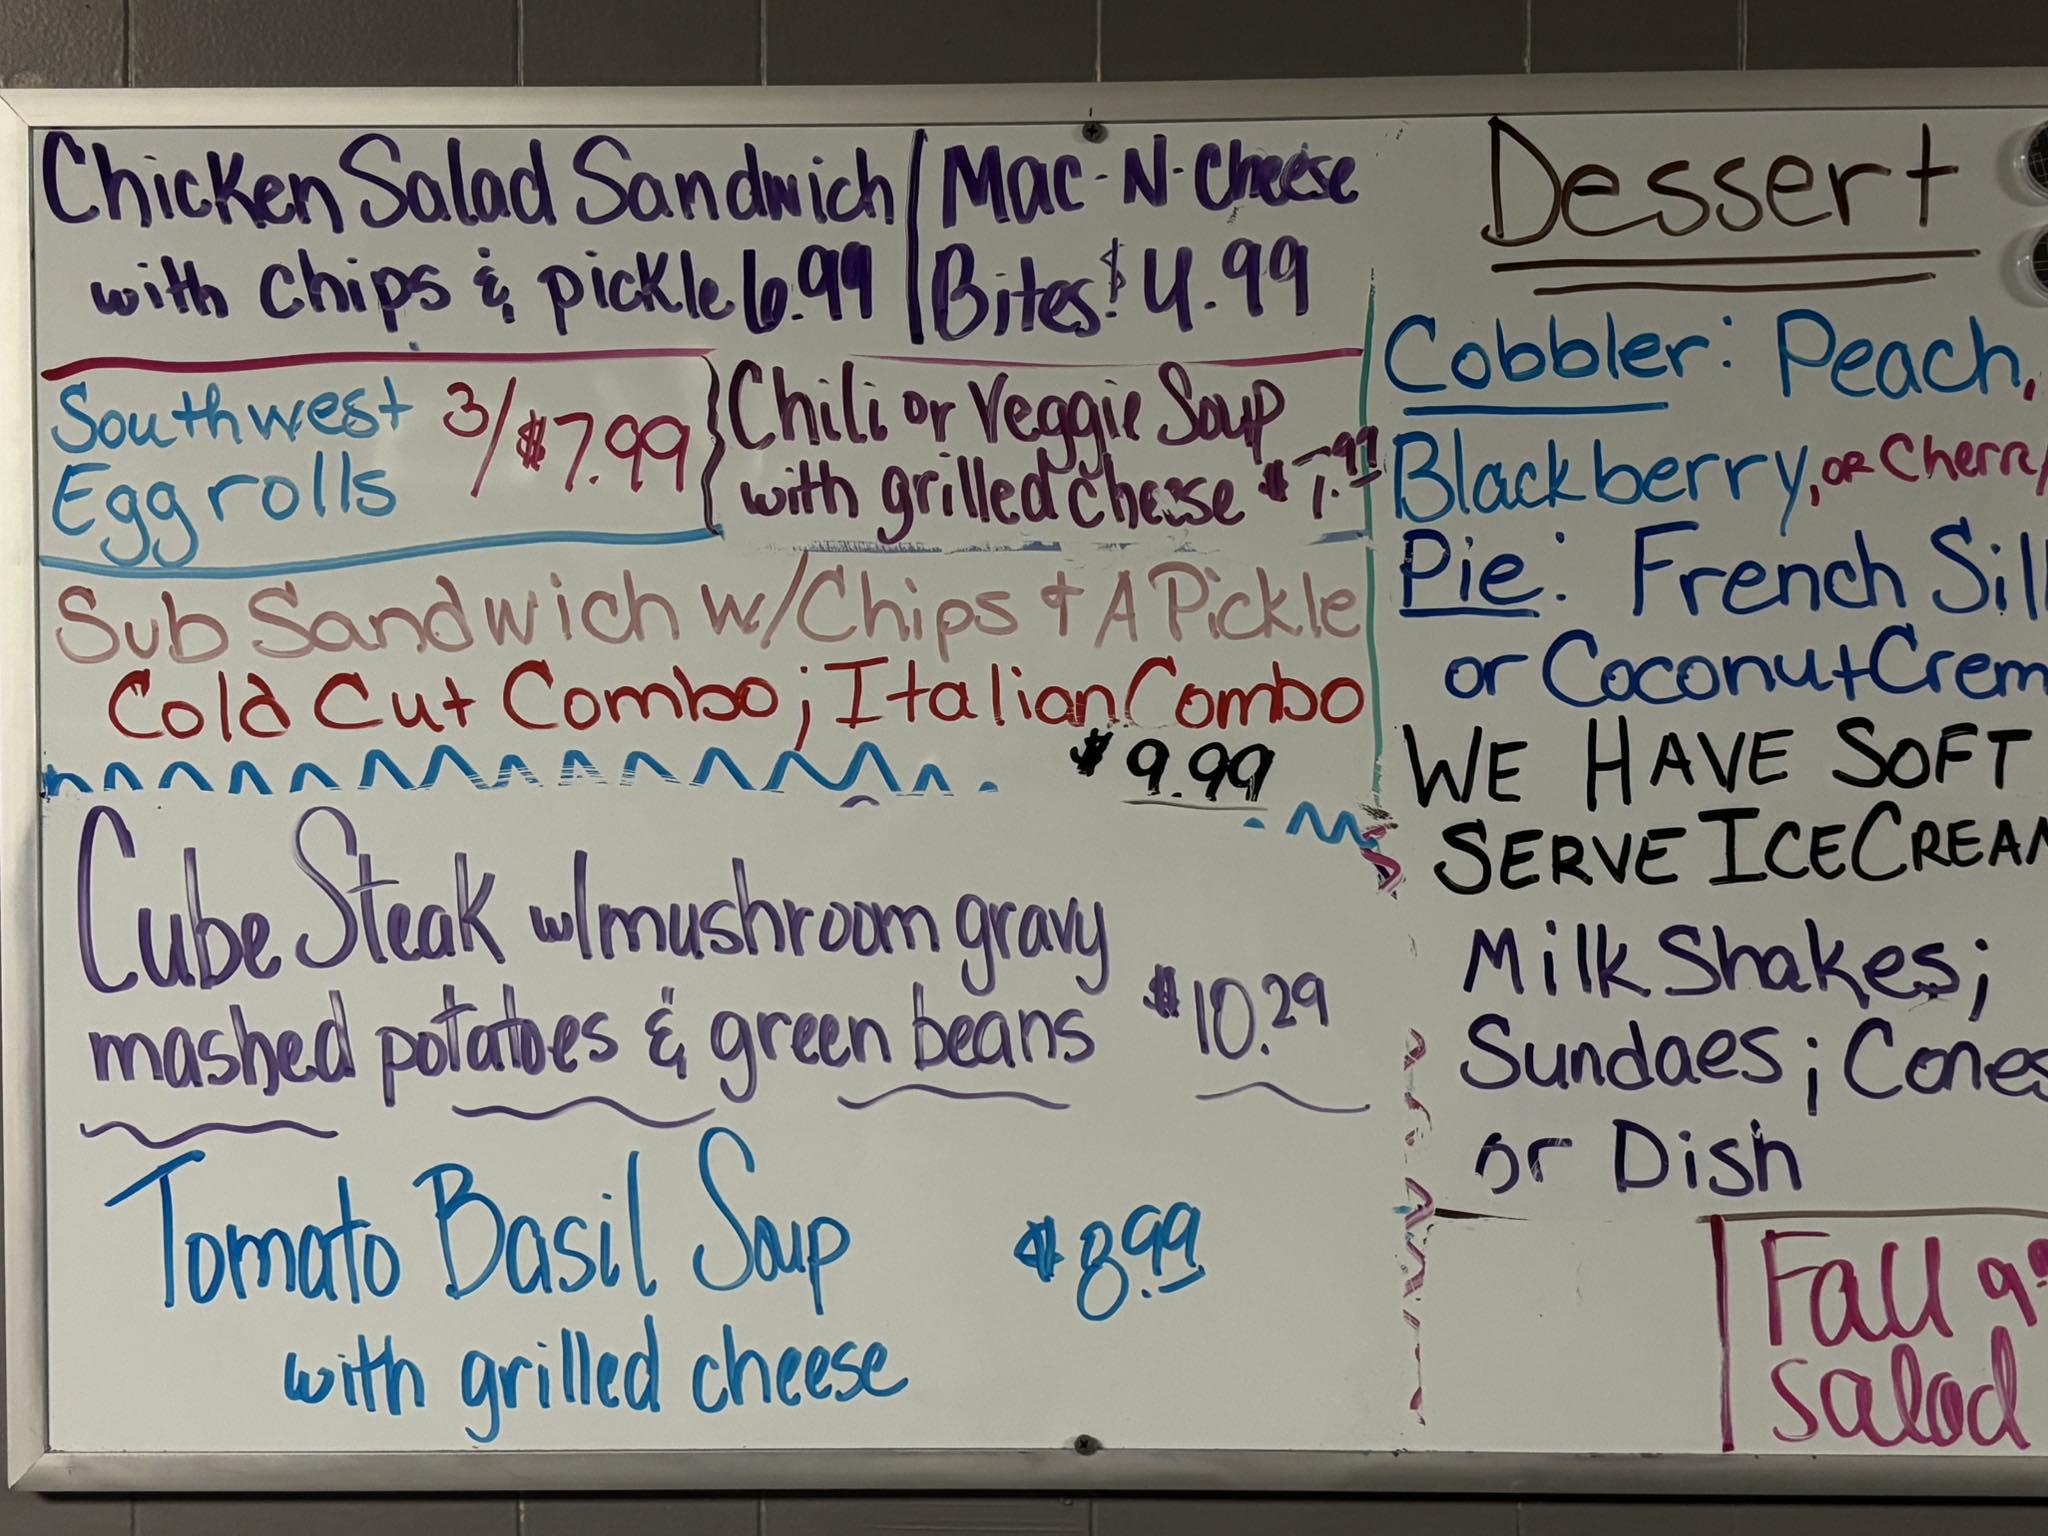 Chicken Salad Sandwich
with chips & pickle 6.99
Mac-N-Cheese
Bites $4.99
Southwest 3/$7.99
Egg rolls
Chili or Veggie Soup
with grilled cheese $7.99
Sub Sandwich w/Chips & A Pickle
Cold Cut Combo; Italian Combo
$9.99
Cube Steak w/mushroom gravy
mashed potatoes & green beans $10.29
Tomato Basil Soup $8.99
with grilled cheese
Dessert
Cobbler: Peach,
Blackberry, or Cherry
Pie: French Sil
or Coconut Crem
WE HAVE SOFT
SERVE ICE CREAM
Milk Shakes;
Sundaes; Cones
or Dish
Fall
Salad